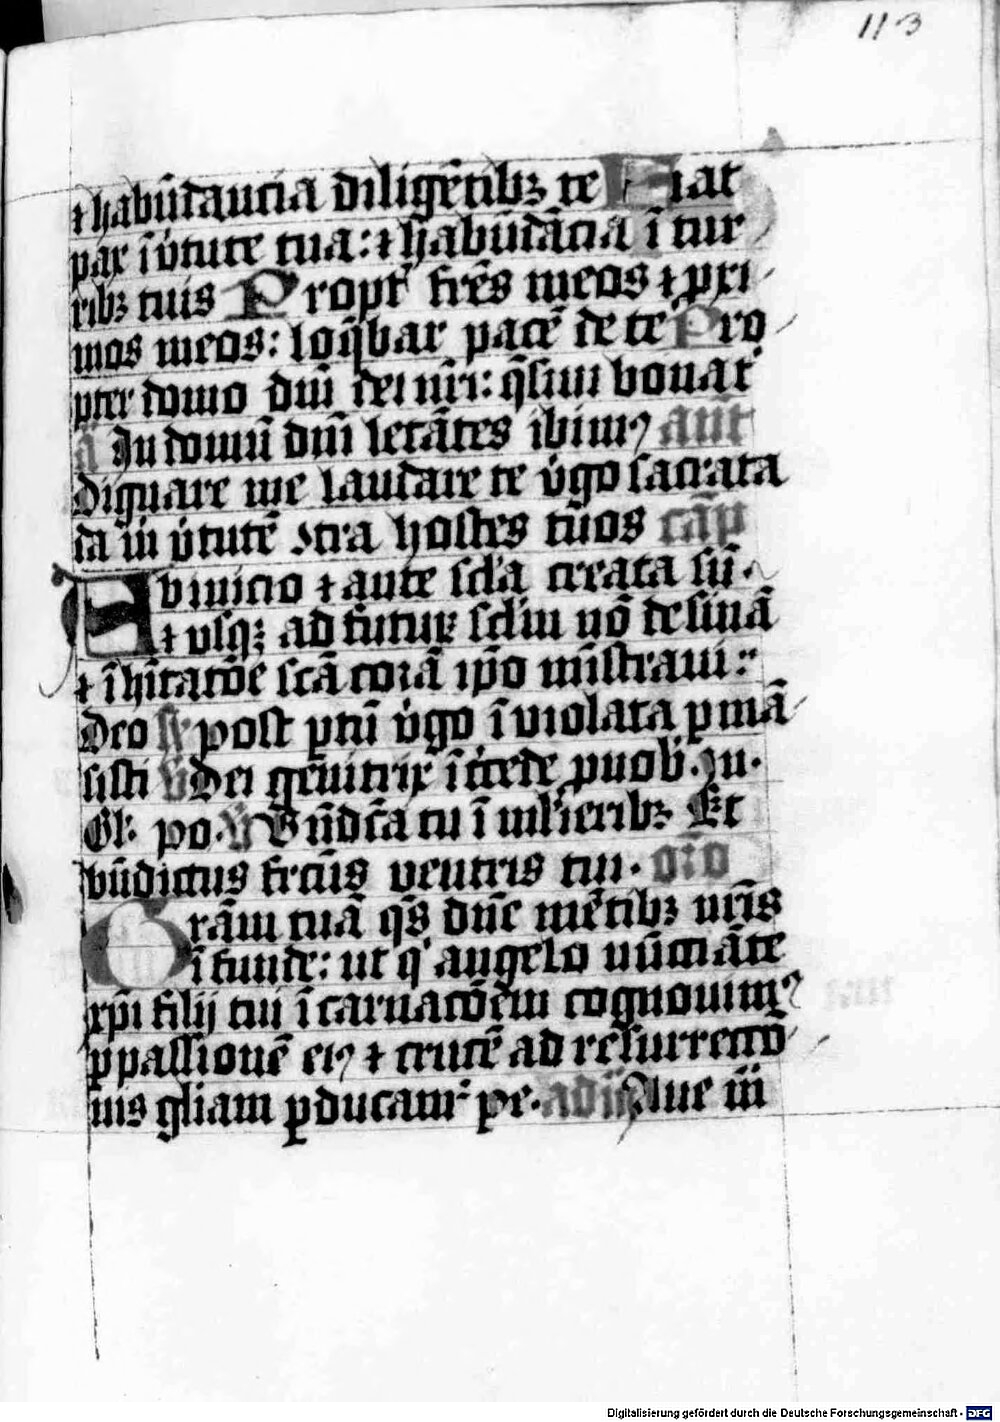 113
⁊ habūdancia diligētibꝫ te Fiat
pax ī v̾tute tua: ⁊ habūdācia ī tur
ribꝫ tuis Propt̾ fr̄es meos ⁊ ꝓxi
mos meos: loq̄bar pacē de te Pro
pter domū dn̄i dei nr̄i: q̄siui bona t̾
ā In domū dn̄i letātes ibimꝰ ant̄
Dignare me laudare te v̾go sacrata
da m̄ v̾tutē ↄtra hostes tuos cāp
Ab inicio ⁊ ante sc̄la creata sū
⁊ vsqꝫ ad futuꝝ sc̄lm nō desinā
⁊ ī hītacōe scā corā ip̄o mīstraui
Deo post ꝑtū v̾go īuiolata ꝑmā
sisti v̄ Dei genitrix īt̾cede ꝓ nob̾. In.
Gl̄. po. v̄ Bn̄dc̄a tu ī ml̾ieribꝫ Et
bn̄dictus fr̄ctus ventris tui. oro
Grām tuā q̄s dn̄e mētibꝫ nr̄is
īfunde: ut q̾ angelo nūciāte
xp̄i filij tui īcarnacōem cognouimꝰ
ꝑ passionē eiꝰ ⁊ crucē ad resurrectō
nis gl̄iam ꝑducamr̾ pe. ad iij Aue m̄
Digitalisierung gefördert durch die Deutsche Forschungsgemeinschaft - DFG